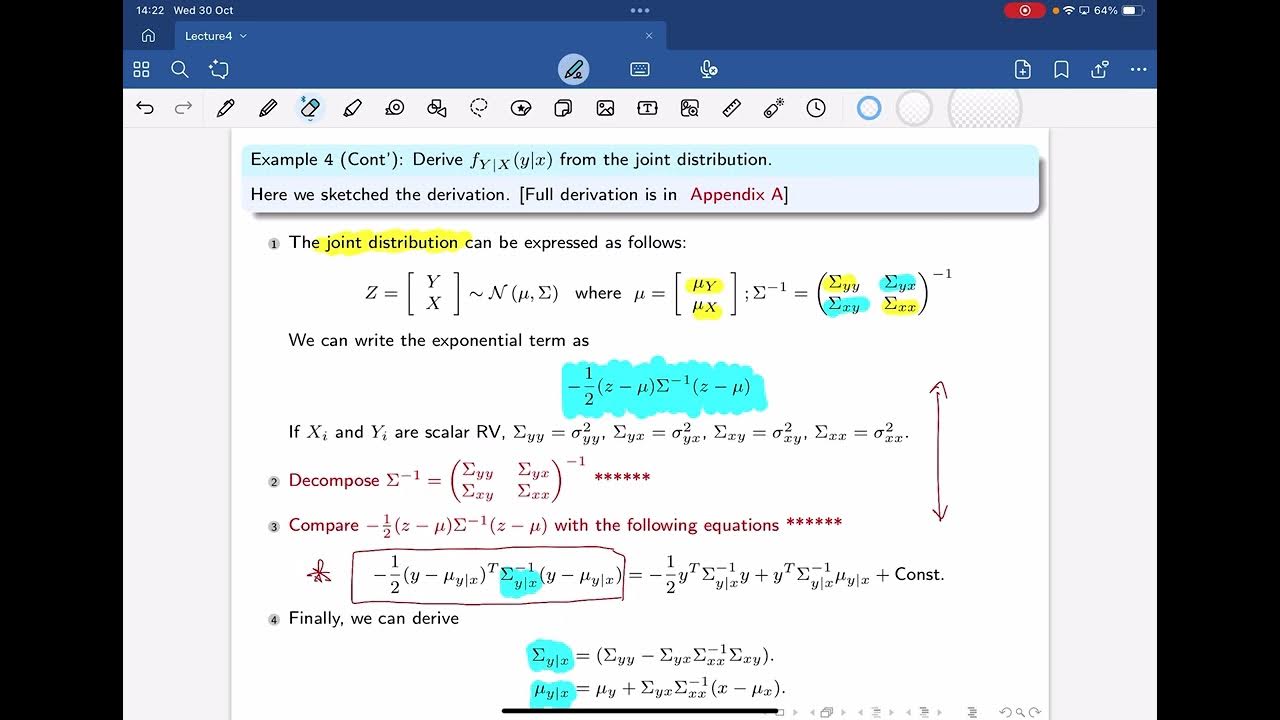 14:22 Wed 30 Oct
64%
Lecture4
Example 4 (Cont'): Derive f_{Y|X}(y|x) from the joint distribution.
Here we sketched the derivation. [Full derivation is in Appendix A]
1 The joint distribution can be expressed as follows:
Z = [ Y X ] ~ N (μ, Σ) where μ = [ μ_Y μ_X ] ; Σ^{-1} = ( Σ_{yy} Σ_{yx} Σ_{xy} Σ_{xx} )^{-1}
We can write the exponential term as
-1/2 (z − μ)Σ^{-1}(z − μ)
If X_i and Y_i are scalar RV, Σ_{yy} = σ²_{yy}, Σ_{yx} = σ²_{yx}, Σ_{xy} = σ²_{xy}, Σ_{xx} = σ²_{xx}.
2 Decompose Σ^{-1} = ( Σ_{yy} Σ_{yx} Σ_{xy} Σ_{xx} )^{-1} ******
3 Compare -1/2 (z − μ)Σ^{-1}(z − μ) with the following equations ******
* -1/2 (y − μ_{y|x})^T Σ^{-1}_{y|x} (y − μ_{y|x}) = -1/2 y^T Σ^{-1}_{y|x} y + y^T Σ^{-1}_{y|x} μ_{y|x} + Const.
4 Finally, we can derive
Σ_{y|x} = (Σ_{yy} − Σ_{yx} Σ^{-1}_{xx} Σ_{xy}).
μ_{y|x} = μ_y + Σ_{yx} Σ^{-1}_{xx} (x − μ_x).